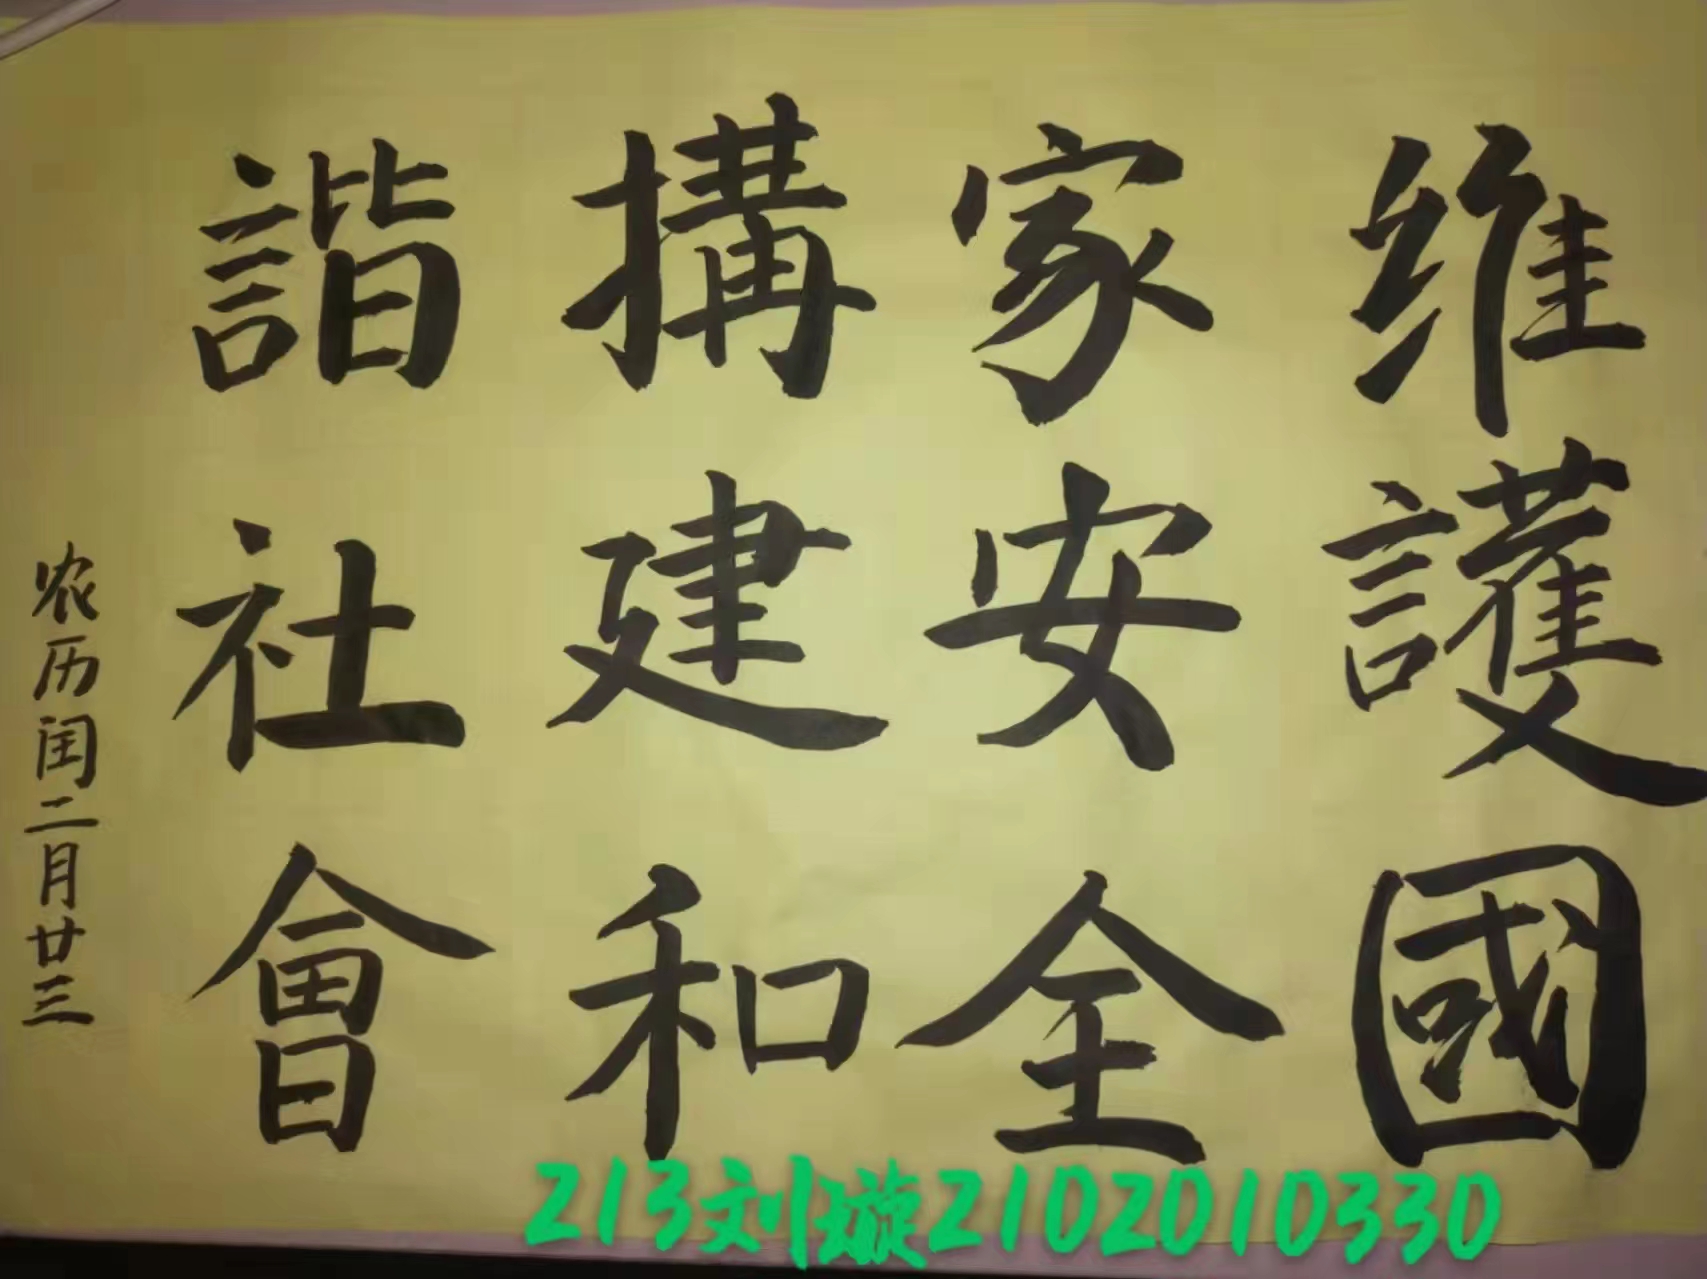 维護國
家安全
搆建和
諧社會
农历闰二月廿三
213刘璇2102010330